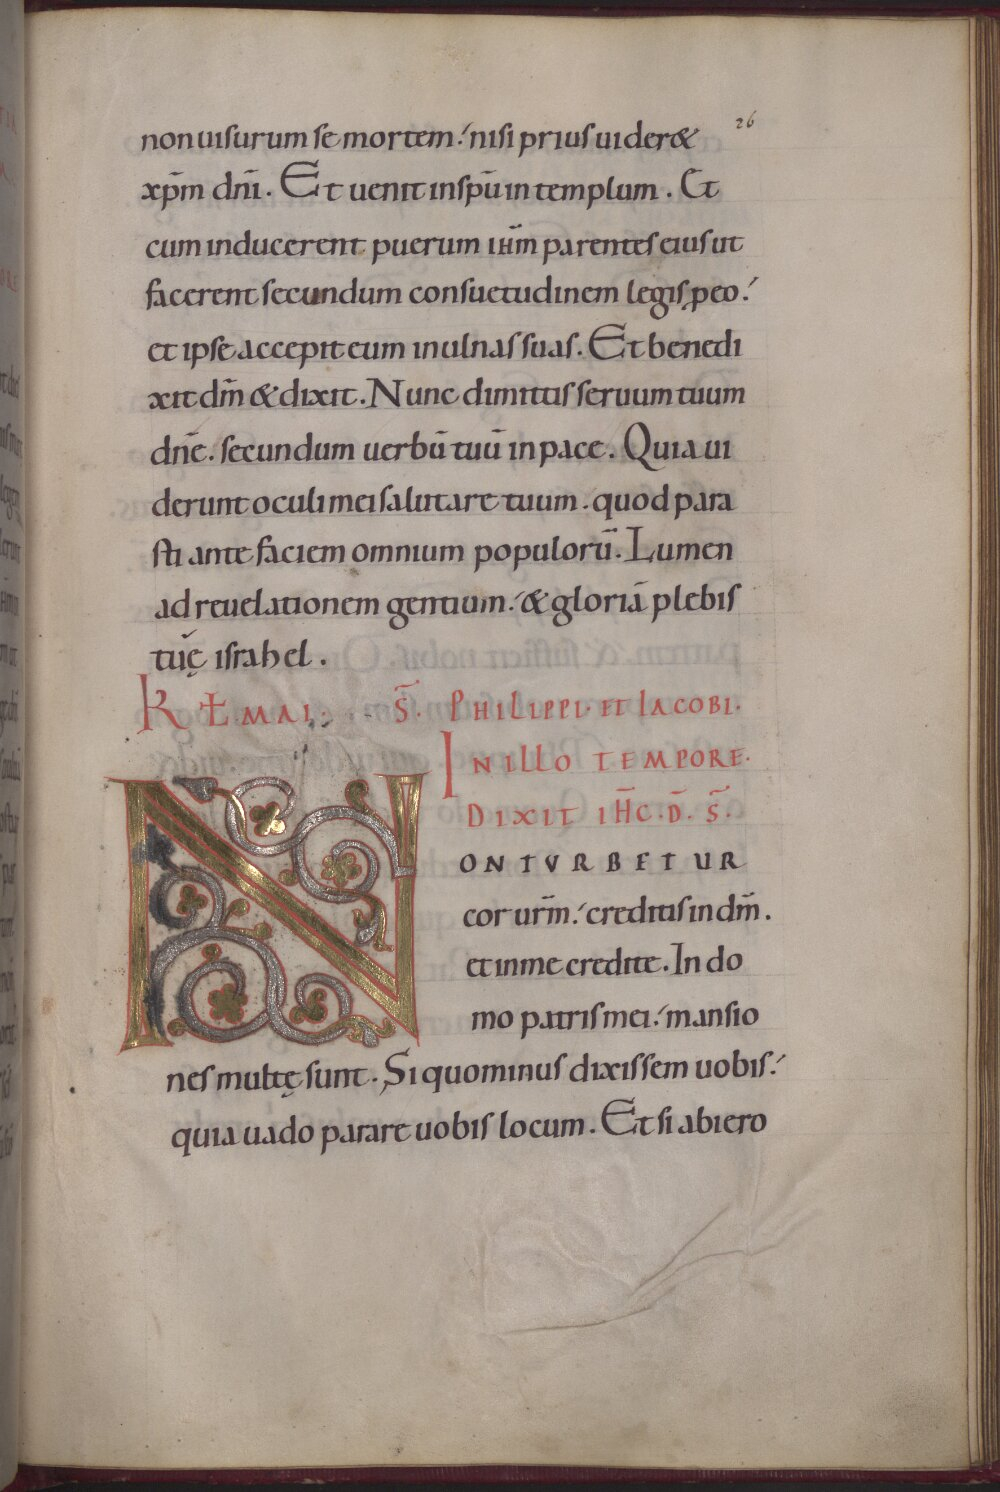 26
non uisurum se mortem. nisi prius uider&
xp̄m dn̄i. Et uenit in sp̄u in templum. Et
cum inducerent puerum ih̄m parentes eius ut
facerent secundum consuetudinem legis p eo.
et ipse accepit eum in ulnas suas. Et benedi
xit dm̄ & dixit. Nunc dimittis seruum tuum
dn̄e. secundum uerbū tuū in pace. Quia ui
derunt oculi mei salutare tuum. quod para
sti ante faciem omnium populorū. Lumen
ad reuelationem gentium. & gloriā plebis
tuę israhel.
KŁ. MAI. S̄. PHILIPPI. ET IACOBI.
IN ILLO TEMPORE.
DIXIT IH̄C. D̄. S̄.
NON TVRBETUR
cor ur̄m. creditis in dm̄.
et in me credite. In do
mo patris mei. mansio
nes multę sunt. Si quominus dixissem uobis.
quia uado parare uobis locum. Et si abiero